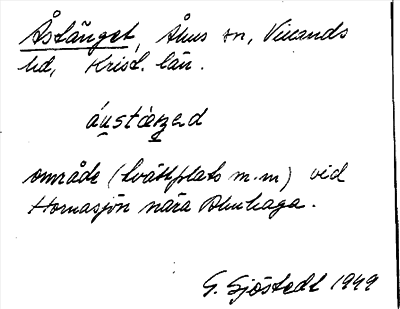 Åstänget, Åhus sn, Villands
hd, Krist. län.
áustàŋed
område (tvättplats m.m) vid
Hornasjön nära
G. Sjöstedt 1949